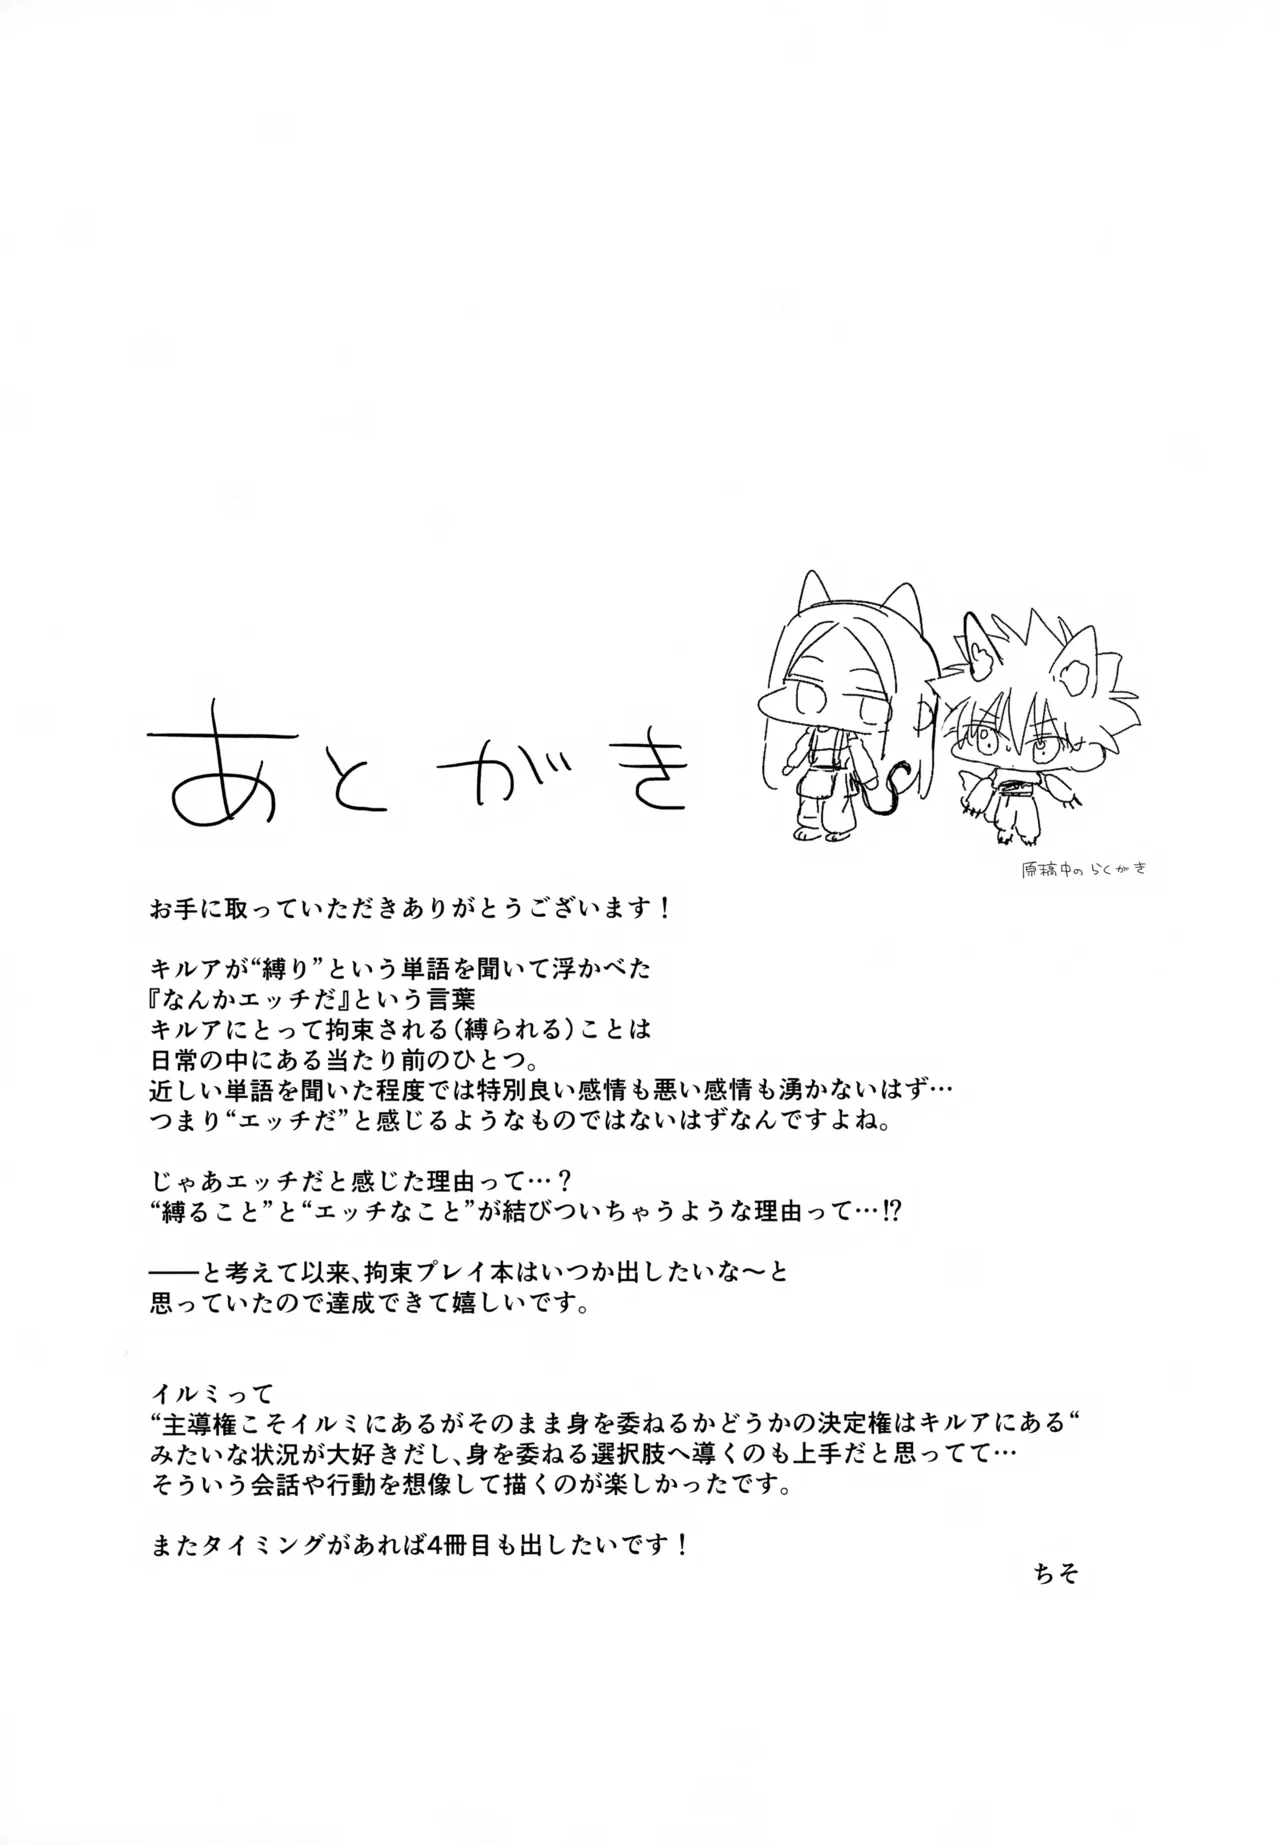 あとがき
原稿中のらくがき
お手に取っていただきありがとうございます！
キルアが“縛り”という単語を聞いて浮かべた
『なんかエッチだ』という言葉
キルアにとって拘束される（縛られる）ことは
日常の中にある当たり前のひとつ。
近しい単語を聞いた程度では特別良い感情も悪い感情も湧かないはず…
つまり“エッチだ”と感じるようなものではないはずなんですよね。
じゃあエッチだと感じた理由って…？
“縛ること”と“エッチなこと”が結びついちゃうような理由って…!?
――と考えて以来、拘束プレイ本はいつか出したいな～と
思っていたので達成できて嬉しいです。
イルミって
“主導権こそイルミにあるがそのまま身を委ねるかどうかの決定権はキルアにある“
みたいな状況が大好きだし、身を委ねる選択肢へ導くのも上手だと思ってて…
そういう会話や行動を想像して描くのが楽しかったです。
またタイミングがあれば4冊目も出したいです！
ちそ